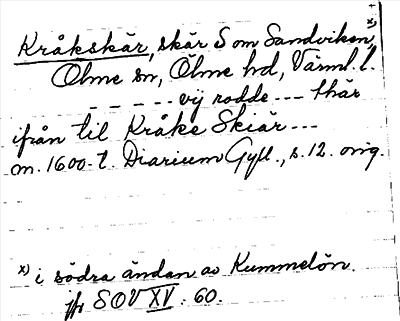 Kråkskär, skär S om Sandviken, x)
Ölme sn, Ölme hd, Värml. l.
- - - - - vij rodde --- thär
ifrån til Kråke Skiär ---
m. 1600-t. Diarium Gyll., s. 12. orig.
x) i södra ändan av Kummelön.
jfr SOV XV : 60.